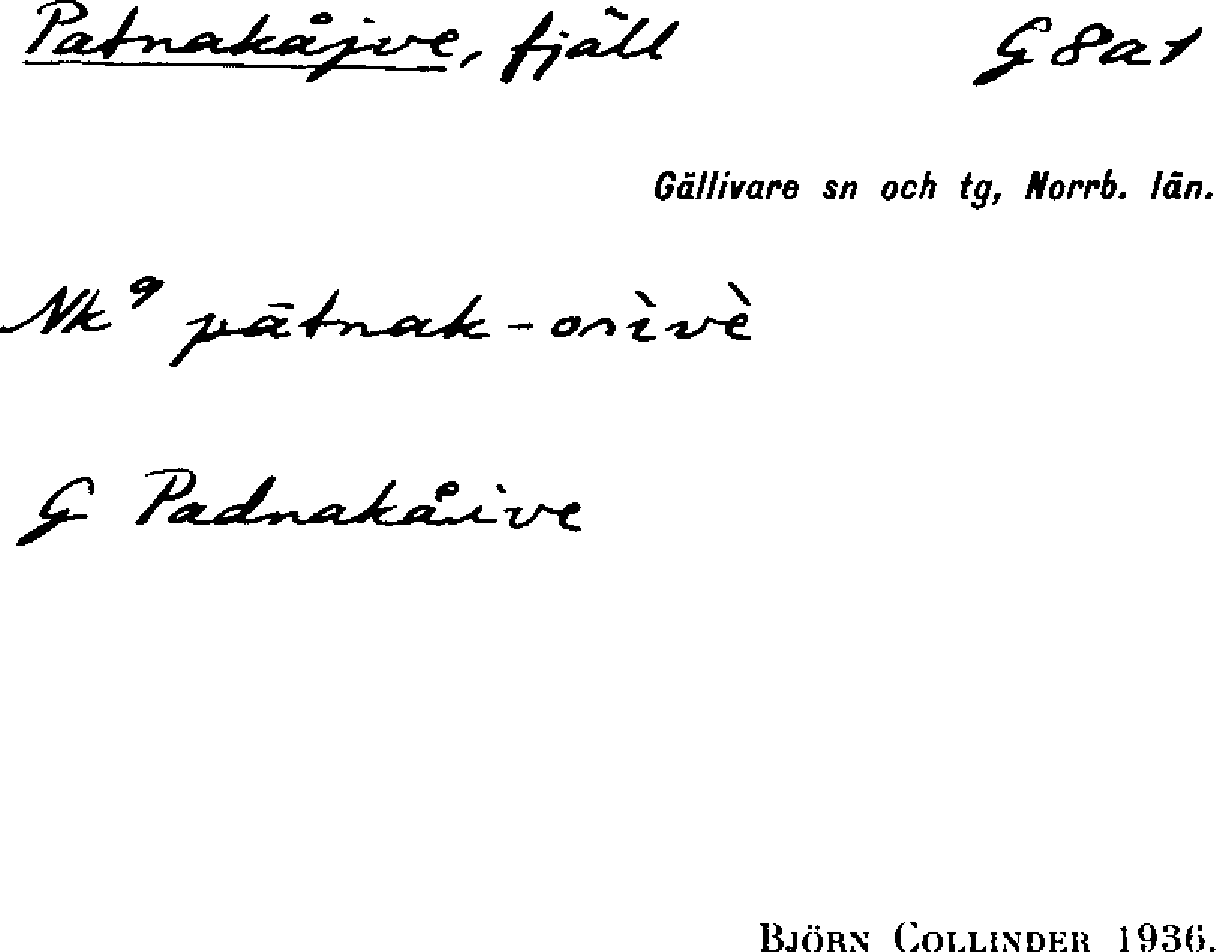 Patnakåjve, fjäll G 8 a 1
Gällivare sn och tg, Norrb. län.
Nk⁹ pātnak-oı̀vè
G Padnakåive
BJÖRN COLLINDER 1936.